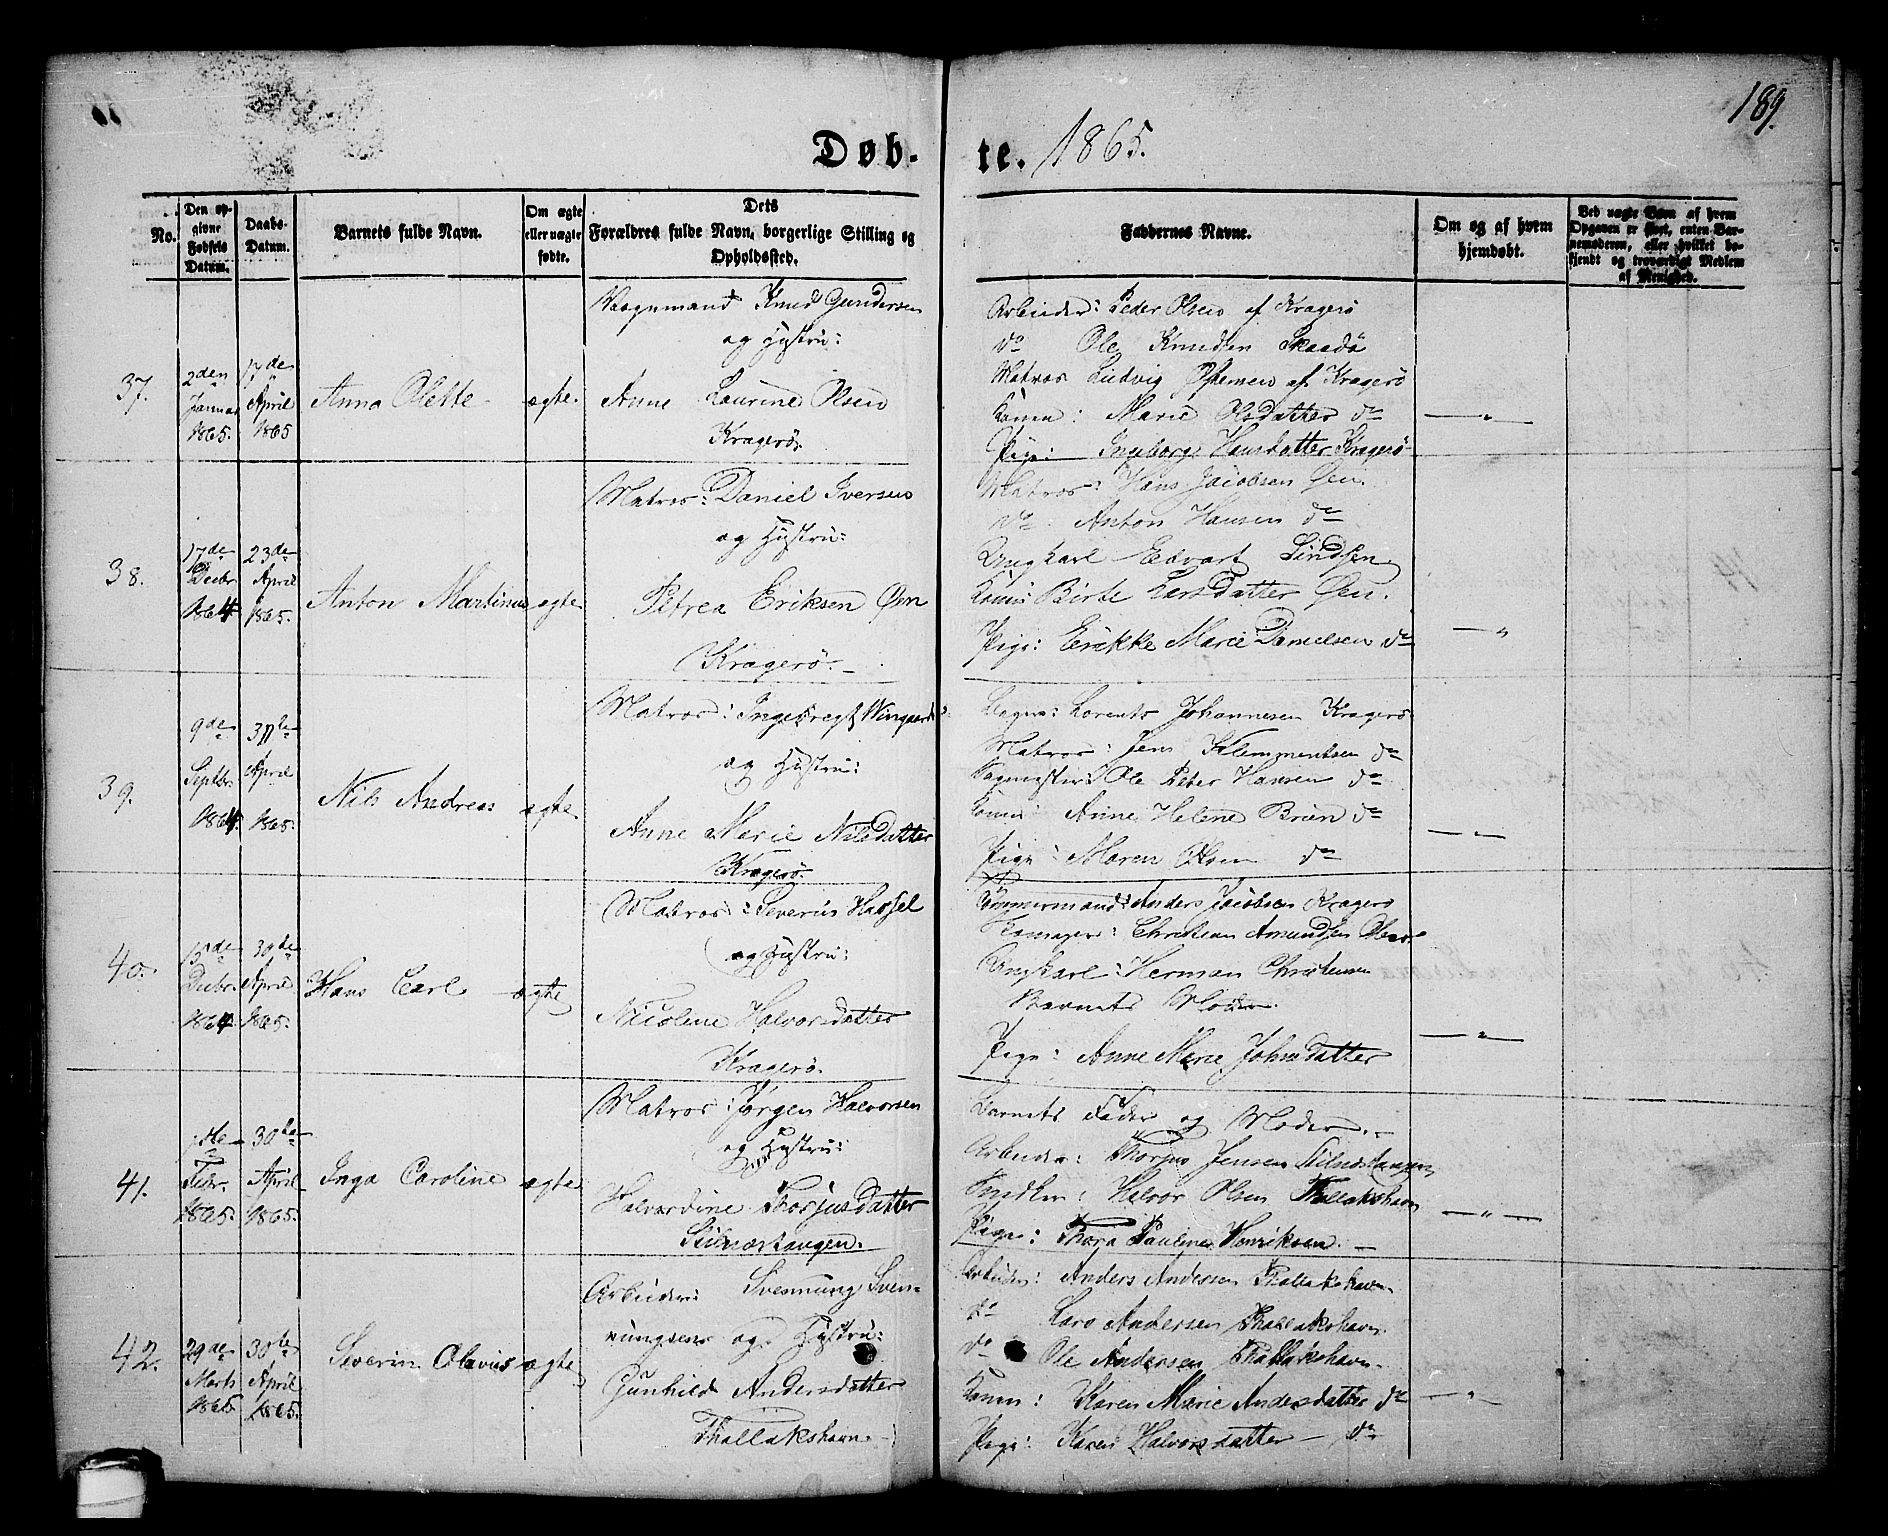 189.
Døb-te. 1865.
No.
Den op-
givne
Fødsels
Datum.
Daabs-
Datum.
Barnets fulde Navn.
Om ægte
eller uægte
fødte.
Dets
Forældres fulde Navn, borgerlige Stilling og
Opholdssted.
Faddernes Navne.
Om og af hvem
hjemdøbt.
Ved uægte Børn af hvem
Opgaven er skeet, enten Bar-
nemoderen, eller hvilket be-
kjendt og troværdigt Medlem
af Menighed.
37.
2den
Januar
1865.
17de
April
1865
Anna Olette
ægte.
Knud Gundersen
og Hystru:
Anne Laurine Olsen
Kragerø.
Arbeider: Peder Olsen af Kragerø
do Ole Knudsen Skaadø
Matros Ludvig af Kragerø
Konen: Marie Olsdatter do
Pige: Ingeborg Hansdatter Kragerø
38.
17de
Decbr
1864
23de
April
1865.
Anton Martinus
ægte
Matros: Daniel Iversen
og Hystru:
Petrea Eriksen Øen
Kragerø.
Matros: Hans Jacobsen Øen.
do Anton Hansen do
Ungkarl Edvart Lindsen
Konen Birte Larsdatter Øen.
Pige: Erikke Marie Danielsen do
39.
9de
Septbr
1864.
April
1865.
Nils Andreas
ægte
Matros:
og Hystru:
Anne Marie Nilsdatter
Kragerø.
Lorents Johannesen Kragerø
Matros: Jens Klemmentsen do
Ole Peter Hansen do
Konen Anne Helene Brien do
Pige: Maren Olsen do
40.
15de
Decbr.
1864.
30te
April
1865.
Hans Carl
ægte
Matros: Severin Hassel
og Hystru:
Nicolene Halvorsdatter
Kragerø.
Tømmermand: Anders Jacobsen Kragerø
Christian Amundsen
Ungkarl: Herman Christensen
Barnets Moder.
Pige: Anne Marie Johnsdatter
41.
1ste
Febr.
1865.
30te
April
1865.
Inga Caroline
ægte
Matros: Jørgen Halvorsen
og Hystru:
Halvordine Thorjusdatter
Stilnæstangen.
Barnets Fader og Moder.
Arbeider: Thorjus Jensen Stilnæstangen
Halvor Olsen Thallakshavn
Pige: Thora Pauline Henriksen.
42.
29de
Marts
1865
30te
April
1865.
Severin Olavus
ægte
Arbeider: Svennung Sven-
nungsen og Hystru:
Gunhild Andersdatter
Thallakshavn.
Arbeider: Anders Andersen Thallakshavn
do Lars Andersen Thallakshavn.
do Ole Andersen Thallakshavn.
Konen: Karen Marie Andersdatter do
Pige: Karen Halvorsdatter do